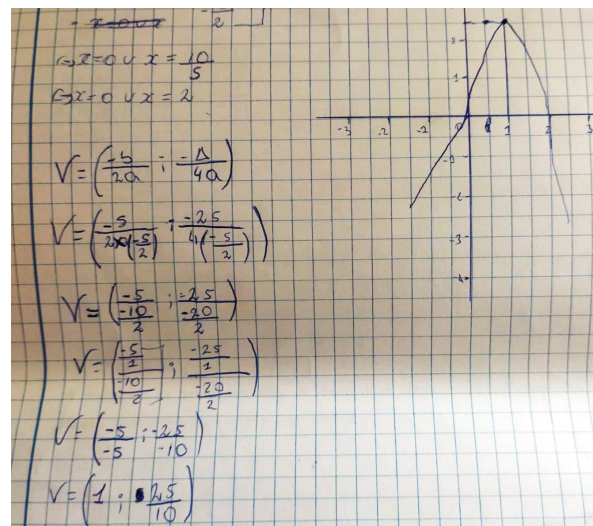 (=) x = 0 ∪ x = 10/5
(=) x = 0 ∪ x = 2
V = (-b/2a ; -Δ/4a)
V = (-5/2×(-5/2) ; -25/4(-5/2))
V = (-5/(-10/2) ; -25/(-20/2))
V = ((-5/1)/(-10/2) ; (-25/1)/(-20/2))
V = (-5/-5 ; -25/-10)
V = (1 ; 25/10)
2
1
-3 -2 -1 0 1 2 3
-3
-4